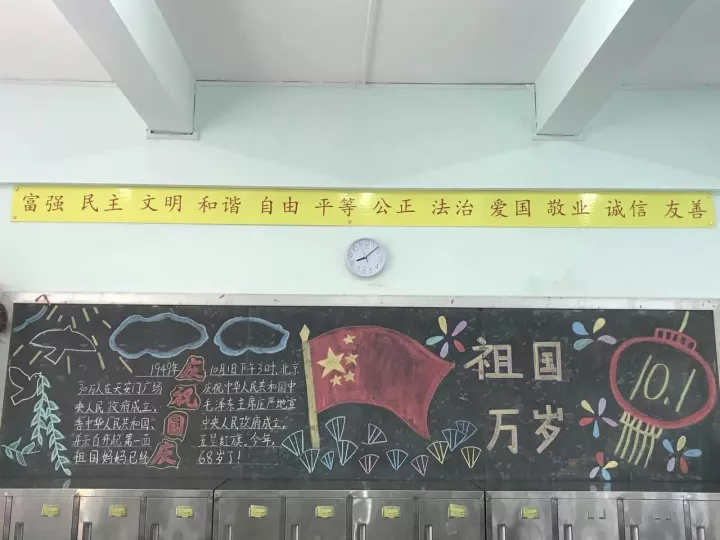 富强 民主 文明 和谐 自由 平等 公正 法治 爱国 敬业 诚信 友善
庆祝国庆
1949年10月1日下午3时,北京
30万人在天安门广场庆祝中华人民共和国中
央人民政府成立,毛泽东主席庄严地宣
告中华人民共和国、中央人民政府成立,
并亲自升起第一面五星红旗,今年,
祖国妈妈已经68岁了!
祖国
万岁
10.1